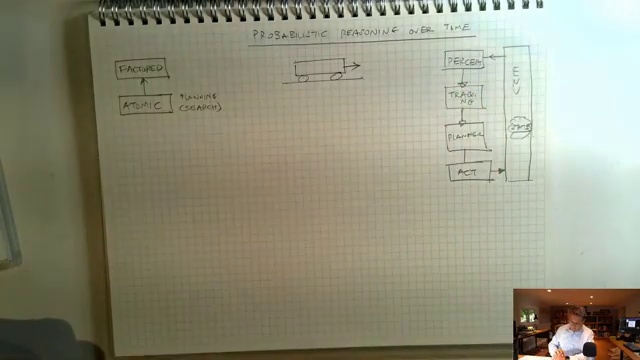 PROBABILISTIC REASONING OVER TIME
FACTORED
ATOMIC
PLANNING
(SEARCH)
TRACK
ING
PLANNER
ACT
ENV
STATE